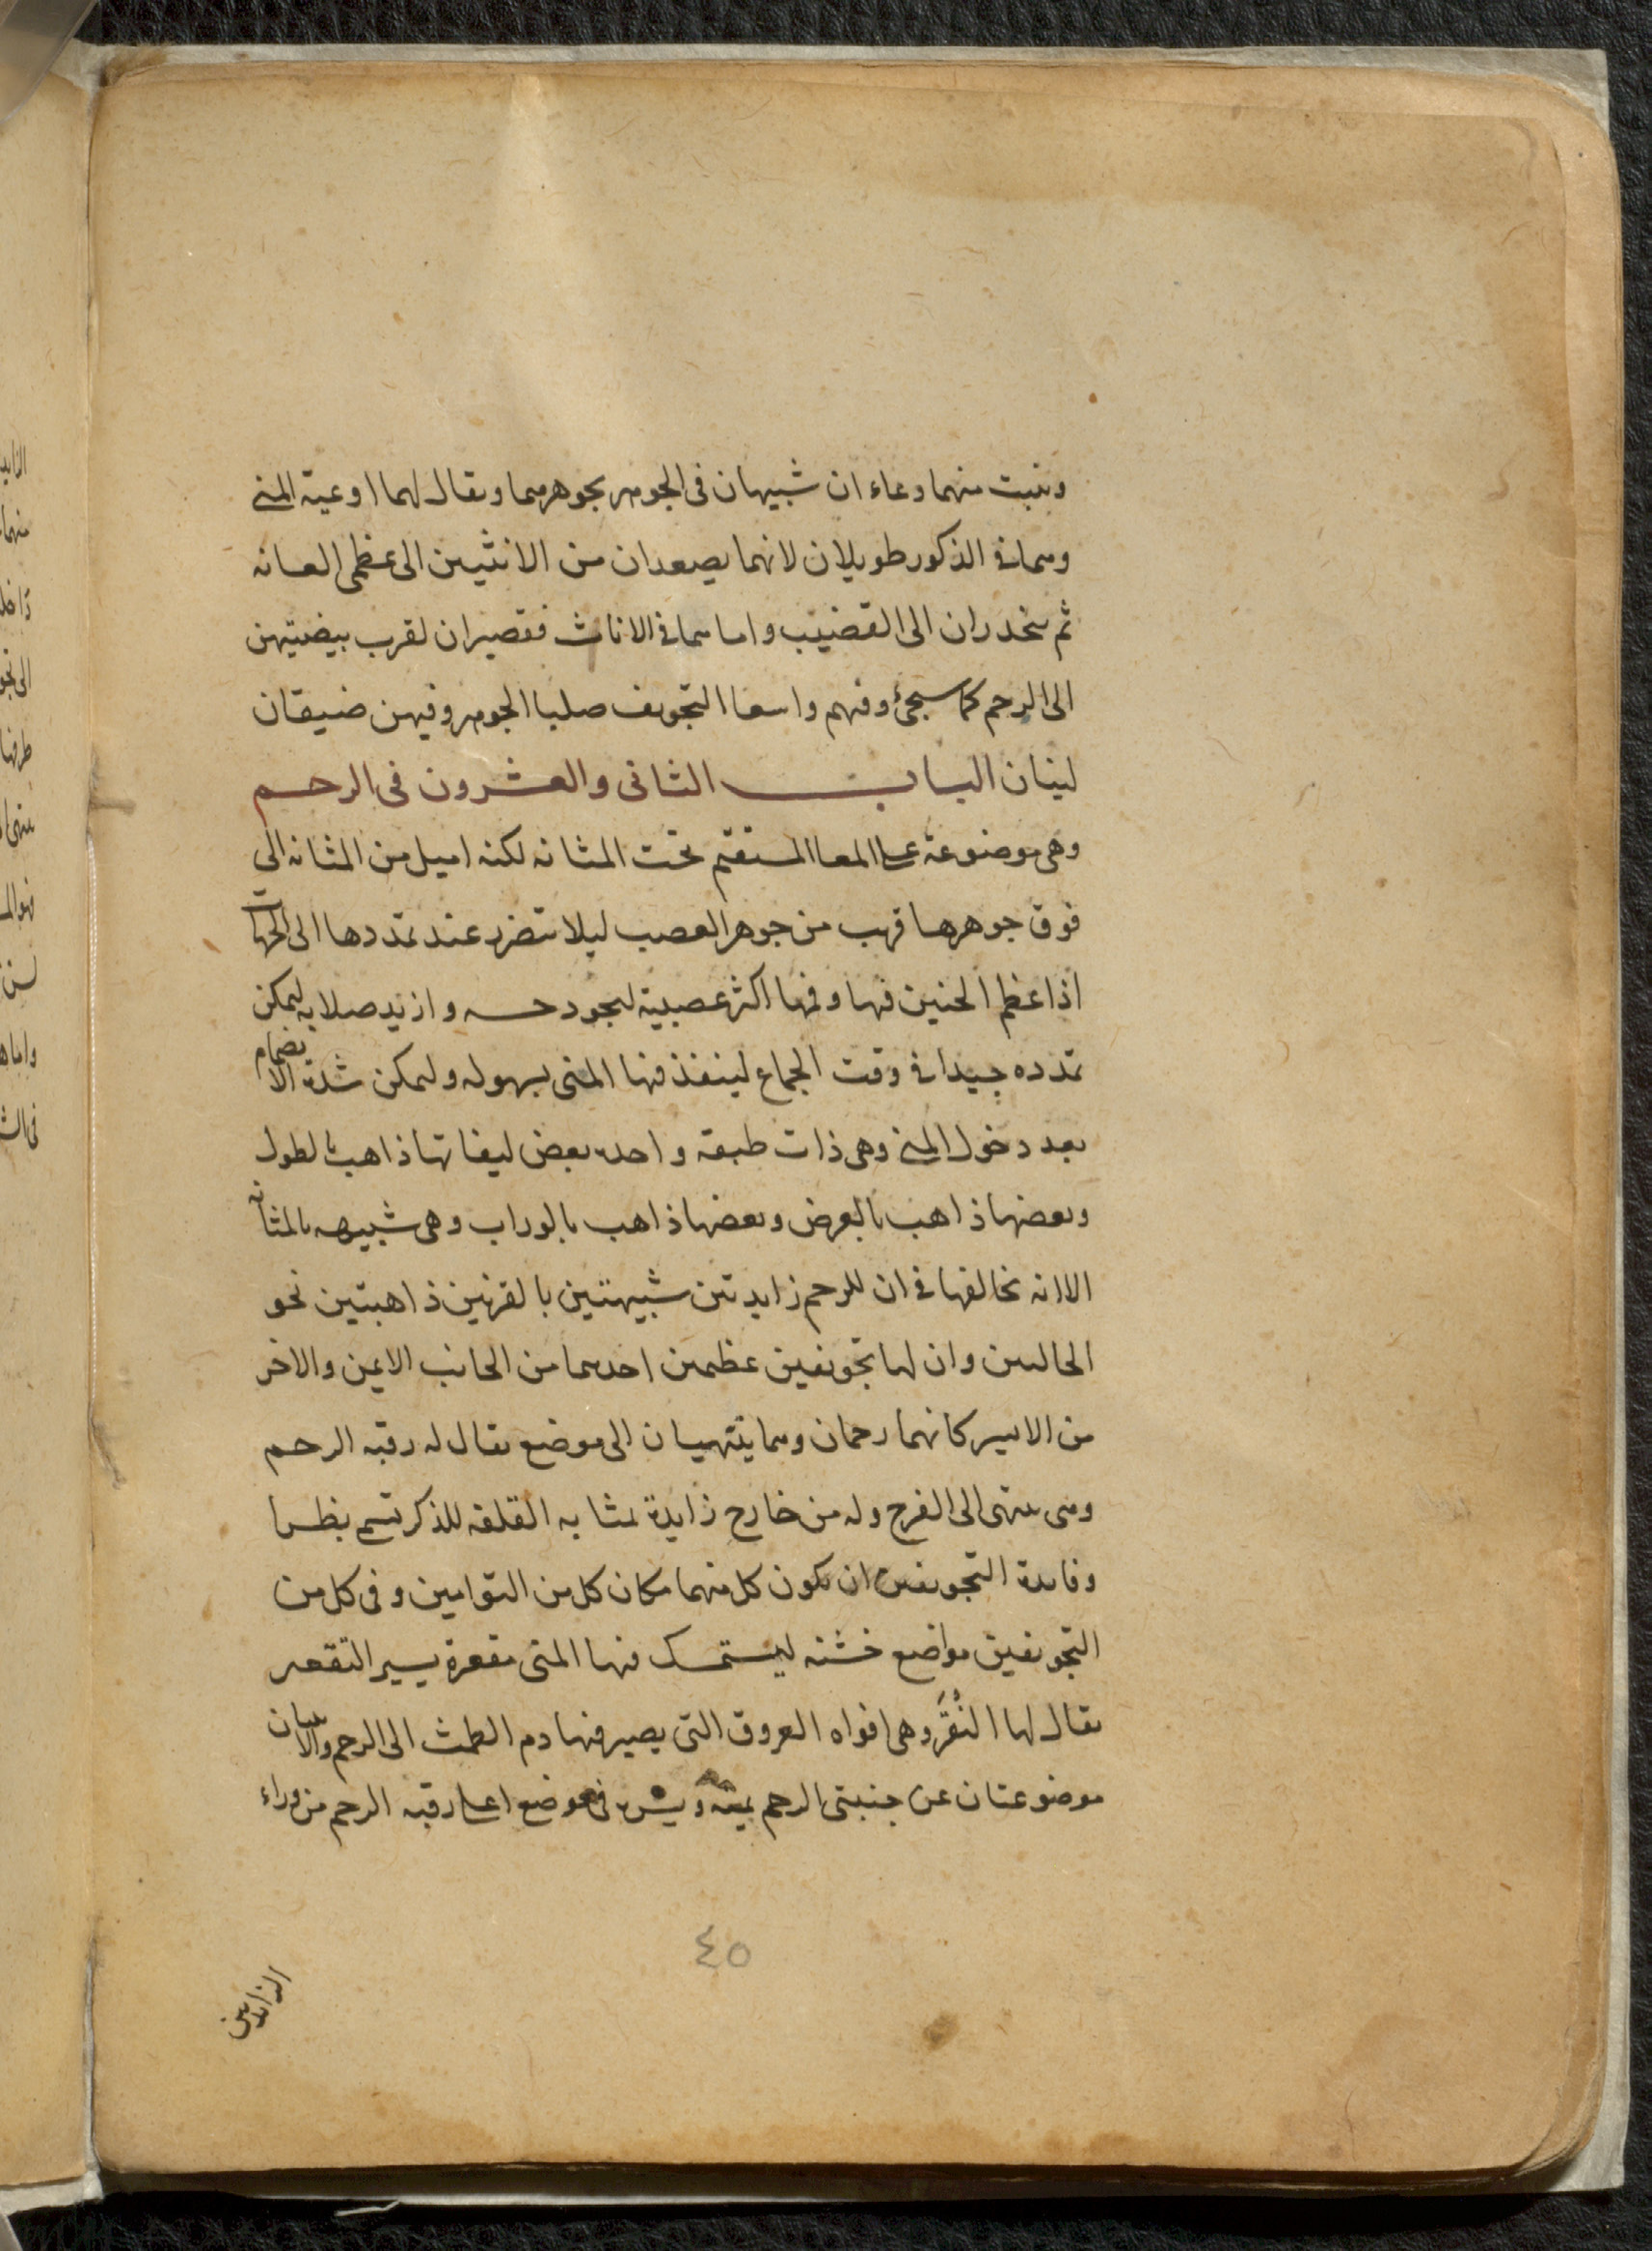 وينبت منهما وعاء ان شبيهان فى الجوهر بجوهرهما ويقال لهما اوعية المنى
وهما فى الذكور طويلان لانهما يصعدان من الانثيين الى عظمى العانه
ثم ينحدران الى القضيب واما هما فى الاناث فقصيران لقرب بيضتيهن
الى الرحم كما سيجئ وفيهم واسعا التجويف صلبا الجوهر وفيهن ضيقان
لينان البـاب الثانى والعشرون فى الرحم
وهى موضوعة على المعا المستقيم تحت المثانه لكنه اميل من المثانه الى
فوق جوهرها قريب من جوهر العصب ليلا تتضرر عند تمددها الى الجهات
اذا عظم الجنين فيها وفمها اكثر عصبية ليجود حسه وازيد صلابه ليمكن
تمدده جيدا فى وقت الجماع لينفذ فيها المنى بسهوله وليمكن شدة الانضمام
بعد دخول المنى وهى ذات طبقه واحده بعض ليفاتها ذاهب بالطول
وبعضها ذاهب بالعرض وبعضها ذاهب بالوراب وهى شبيهه بالمثانه
الا انه يخالفها فى ان للرحم زايدتين شبيهتين بالقرنين ذاهبتين نحو
الحالبين وان لها تجويفين عظيمين احدهما من الجانب الايمن والاخر
من الايسر كانهما رحمان وهما ينتهيان الى موضع يقال له رقبه الرحم
وهى ينتهى الى الفرج وله من خارج زايدة بمثابه القلفه للذكر تسمى بظرا
وفايدة التجويفين ان يكون كل منهما مكان كل من التوامين وفى كل من
التجويفين مواضع خشنه ليستمسك فيها المنى مقعرة يسير التقعير
يقال لها النُقَر وهى افواه العروق التى يصير فيها دم الطمث الى الرحم
موضوعتان عن جنبتى الرحم يمنه ويسره فى موضع اعلى رقبه الرحم من وراء
٤٥
الزايدتين